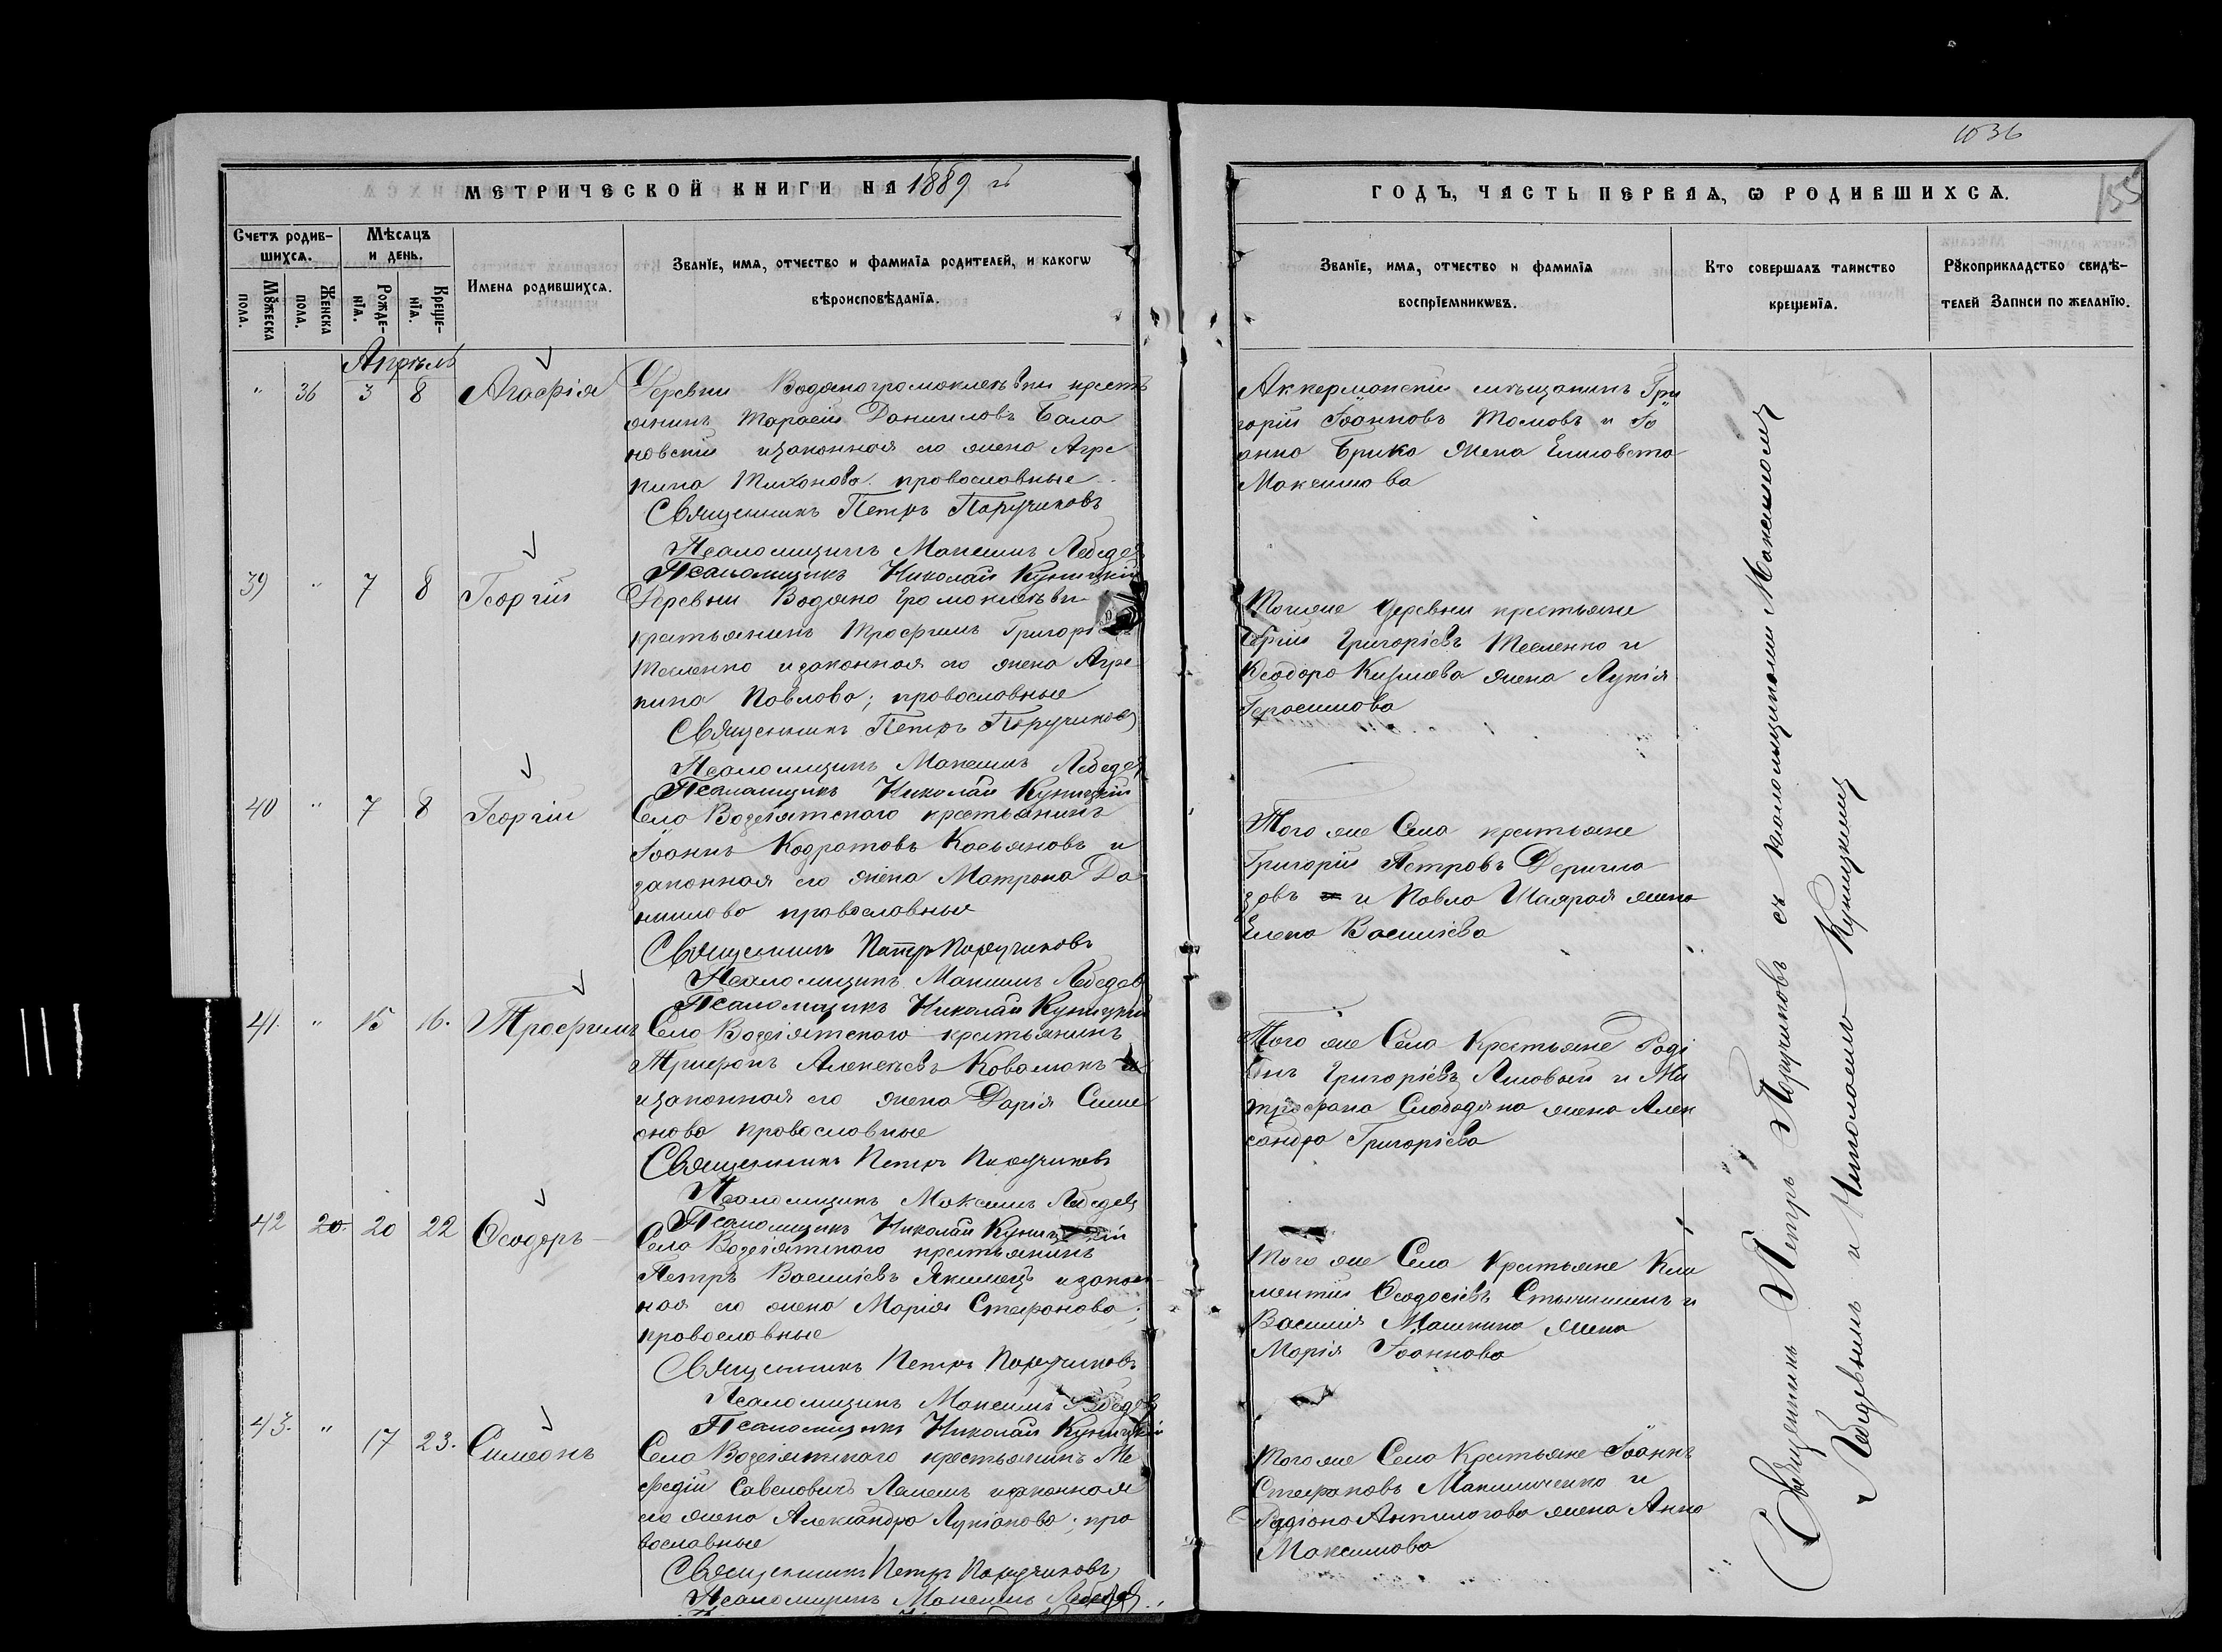 1036
155
МЕТРИЧЕСКОЙ КНИГИ НА 1889 г.
ГОДЪ, ЧАСТЬ ПЕРВАЯ, Ѡ РОДИВШИХСѦ.
Счетъ родив-
шихсѧ.
Мѣсѧцъ
и день.
Мꙋжеска
пола.
Женска
пола.
Рожде-
нїѧ.
Креще-
нїѧ.
Имена родившихсѧ.
Званїе, имѧ, отчество и фамилїѧ родителей, и какогѡ
вѣроисповѣданїѧ.
Званїе, имѧ, отчество и фамилїѧ
воспрїемникѡвъ.
Кто совершалъ таинство
крещенїѧ.
Рꙋкоприкладство свидѣ-
телей записи по желанїю.
Апрѣль
" 36 3 8 Агафія
Деревни Водяногромоклеевки кресть
янинъ Тарасій Даниловъ Бала
новскій и законная его жена Агре
пина Тихонова. православные
Священникъ Петръ Поручиковъ
Псаломщикъ Максимъ Лебедев
Псаломщикъ Николай Куницкій
Аккерманскій мѣщанинъ Гри
горій Іоанновъ Томовъ и Іо
анна Брика жена Елисавета
Максимова
39 " 7 8 Георгій
Деревни Водяно Громоклеевки
крестьянинъ Трофимъ Григорьевъ
Тесленко и законная его жена Агре
пина Павлова; православные
Священникъ Петръ Поручиковъ
Псаломщикъ Максимъ Лебедев
Псаломщикъ Николай Куницкій
Тойже деревни крестьяне
Григоріевъ Тесленко и
Ѳеодора жена Лукія
Герасимова
40 " 7 8 Георгій
Села Возсіятского крестьянинъ
Іоаннъ Кодратовъ Касьяновъ и
законная его жена Матрона Да
нилова православные
Священникъ Петръ Поручиковъ
Псаломщикъ Максимъ Лебедев
Псаломщикъ Николай Куницкій
Того же Села крестьяне
Григорій Петровъ Деригла
зовъ и Павла жена
Елена Василіева
41. " 15 16. Трофимъ
Села Возсіятского крестьянинъ
Трифонъ Алексѣевъ Ковалюкъ
и законная его жена Дарія Симе
онова православные
Священникъ Петръ Поручиковъ
Псаломщикъ Максимъ Лебедев
Псаломщикъ Николай Куницкій
Того же Села Крестьяне Роді
онъ Григоріевъ Лиовый и Ми
трофана Слободяна жена Алек
сандра Григоріева
42 20. 20 22 Ѳеодоръ
Села Возсіятского крестьянинъ
Петръ Василіевъ Якимецъ и закон
ная его жена Марія Стефанова;
православные
Священникъ Петръ Поручиковъ
Псаломщикъ Максимъ Лебедев
Псаломщикъ Николай Куницкій
Того же Села Крестьяне Кли
ментій Ѳеодосіевъ и
Василія жена
Марія Іоаннова
43. " 17 23. Симеонъ
Села Возсіятского крестьянинъ Ме
фодій Савеловичъ и законная
его жена Александра Лукіанова; пра
вославные
Священникъ Петръ Поручиковъ
Псаломщикъ Максимъ Лебедев
Того же Села Крестьяне Іоаннъ
Стефановъ Максимченко и
Родіона Анпилогова жена Анна
Максимова
Священникъ Петръ Поручиковъ съ псаломщиками Максимомъ
Лебедевымъ и Николаемъ Куницкимъ